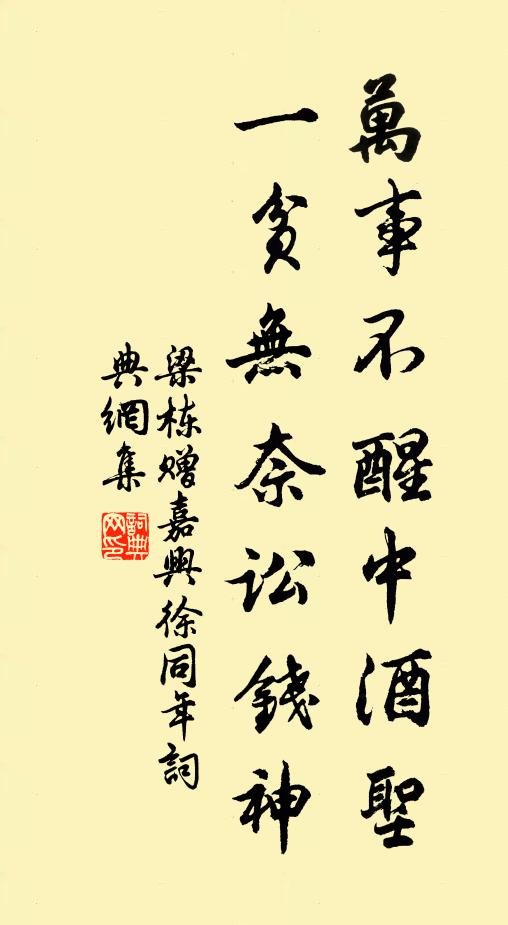 萬事不醒中酒聖
一貧無奈訟錢神
梁栋贈嘉興徐同年詞
典網集
詞典
网印